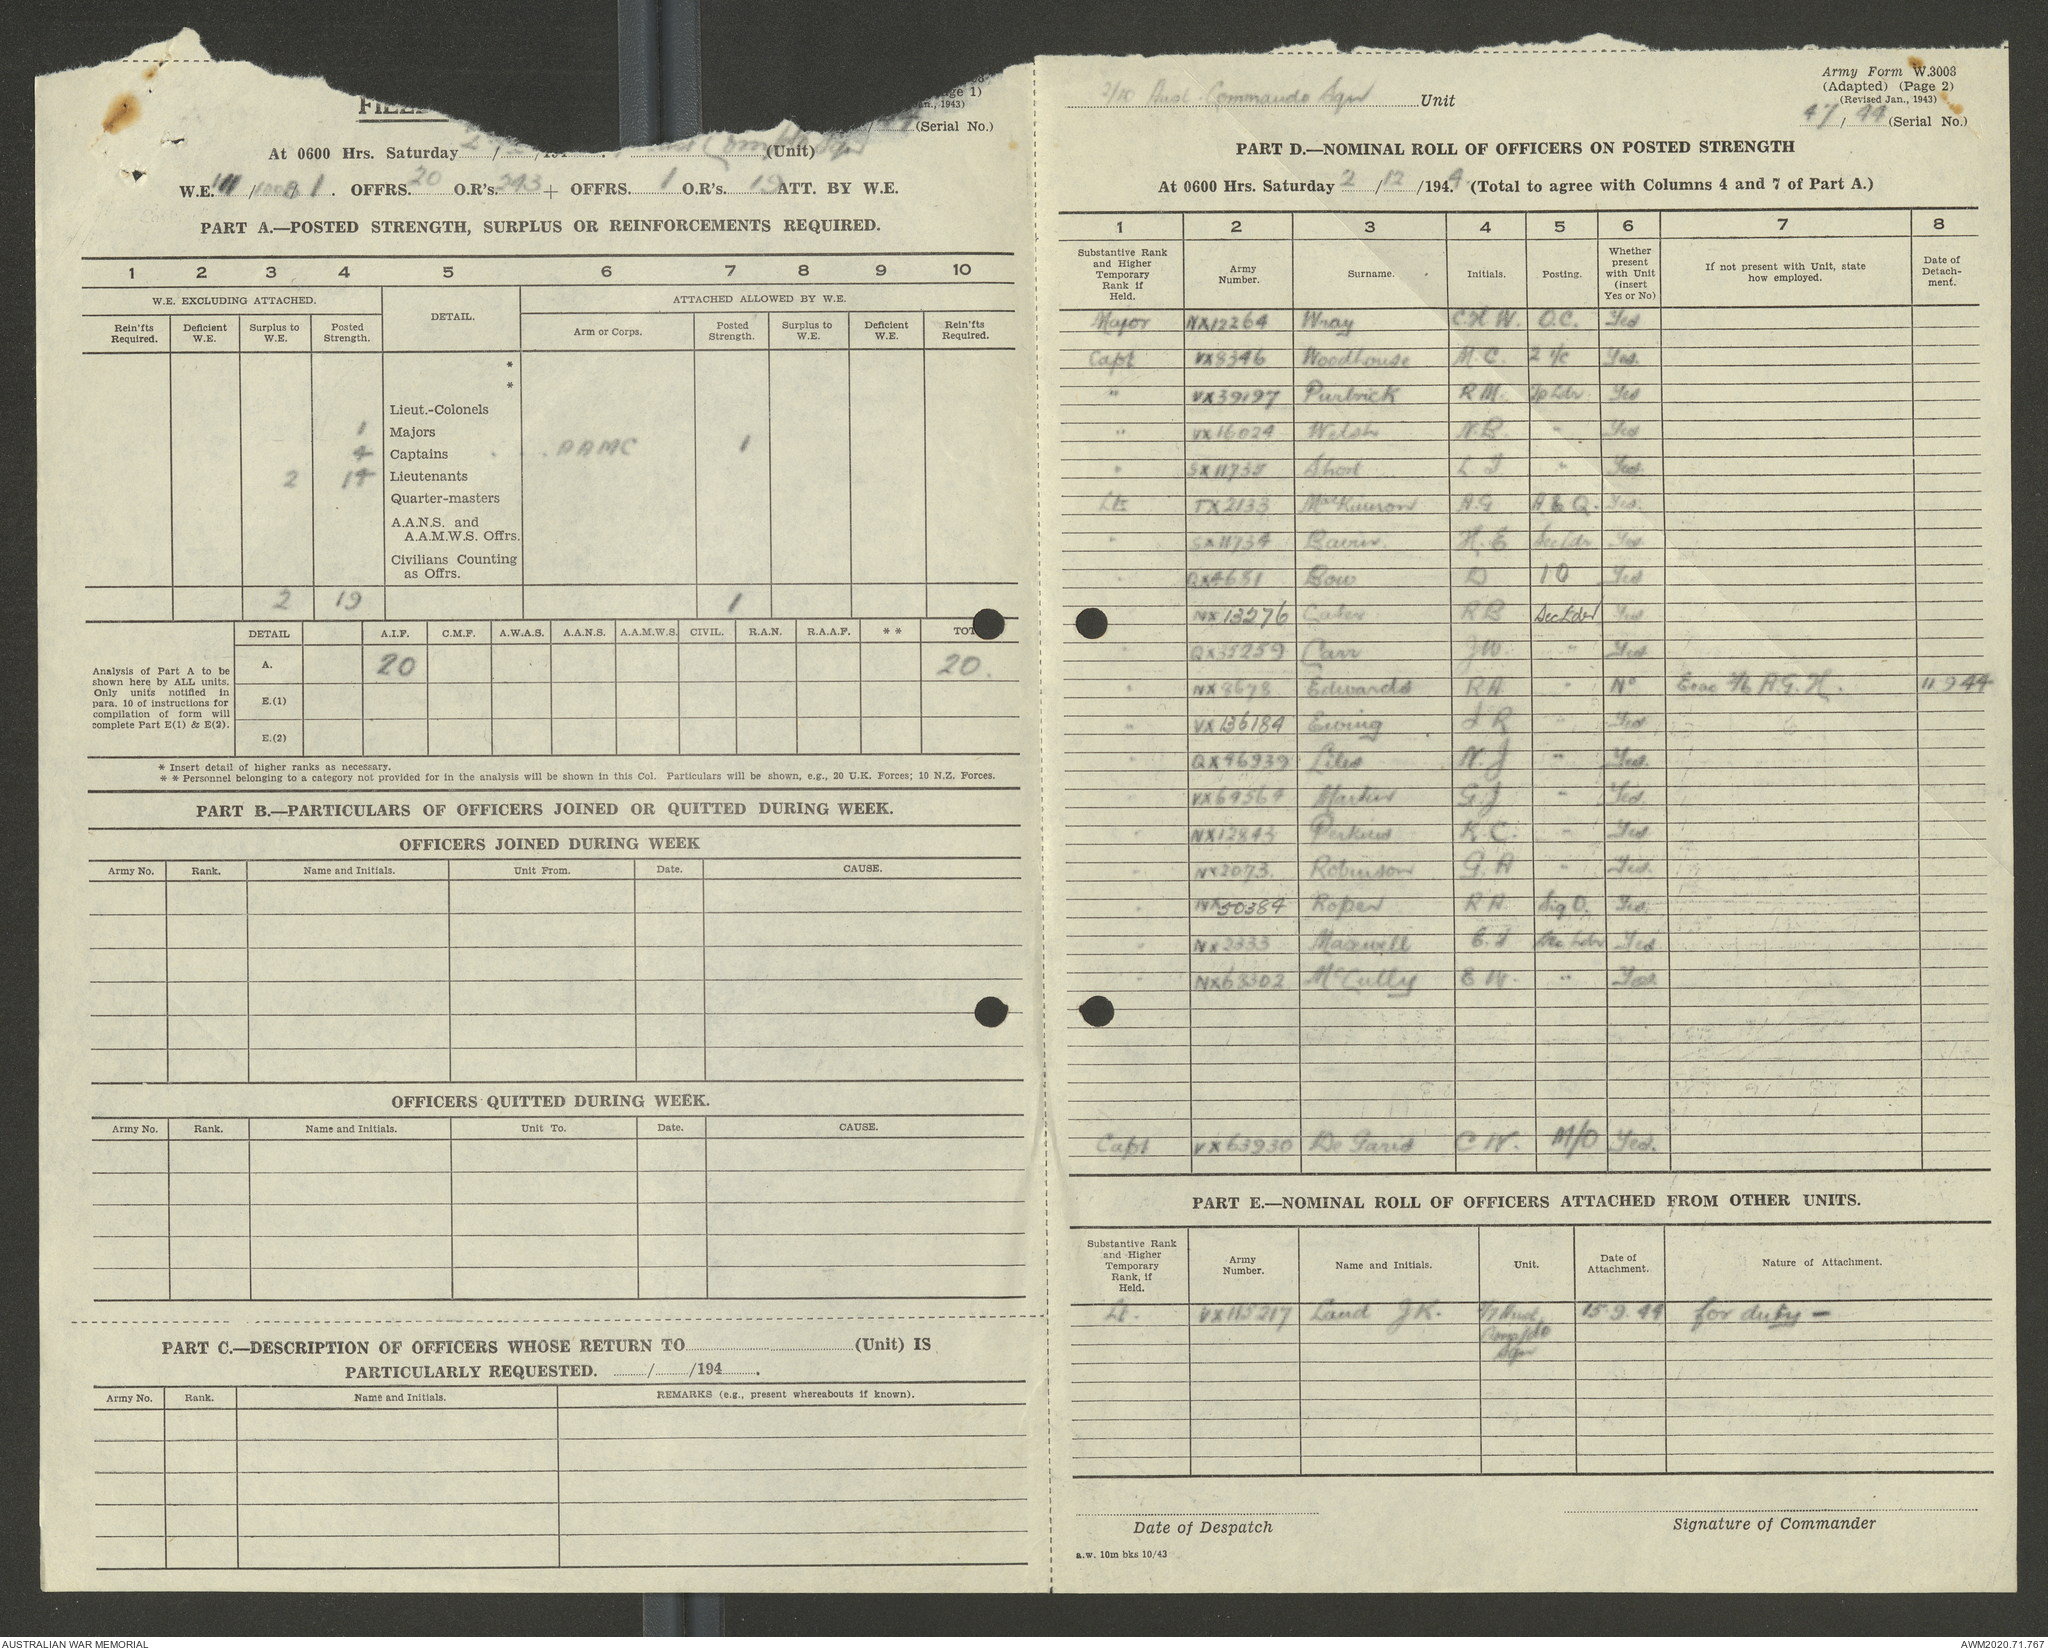 FIELD
(Page 1)
Jan., 1943)
(Serial No.)
At 0600 Hrs. Saturday 2/ /194 . (Unit)
W.E. III / / 1. OFFRS. 20 O.R's. 243 + OFFRS. 1 O.R's. 19 ATT. BY W.E.
PART A.—POSTED STRENGTH, SURPLUS OR REINFORCEMENTS REQUIRED.
1 2 3 4 5 6 7 8 9 10
W.E. EXCLUDING ATTACHED. DETAIL. ATTACHED ALLOWED BY W.E.
Rein'fts Required. Deficient W.E. Surplus to W.E. Posted Strength. Arm or Corps. Posted Strength. Surplus to W.E. Deficient W.E. Rein'fts Required.
*
*
Lieut.-Colonels
1 Majors
4 Captains AAMC 1
2 14 Lieutenants
Quarter-masters
A.A.N.S. and
A.A.M.W.S. Offrs.
Civilians Counting
as Offrs.
2 19 1
DETAIL A.I.F. C.M.F. A.W.A.S. A.A.N.S. A.A.M.W.S. CIVIL. R.A.N. R.A.A.F. * * TOT
Analysis of Part A to be
shown here by ALL units.
Only units notified in
para. 10 of instructions for
compilation of form will
complete Part E(1) & E(2).
A. 20 20.
E.(1)
E.(2)
* Insert detail of higher ranks as necessary.
* * Personnel belonging to a category not provided for in the analysis will be shown in this Col. Particulars will be shown, e.g., 20 U.K. Forces; 10 N.Z. Forces.
PART B.—PARTICULARS OF OFFICERS JOINED OR QUITTED DURING WEEK.
OFFICERS JOINED DURING WEEK
Army No. Rank. Name and Initials. Unit From. Date. CAUSE.
OFFICERS QUITTED DURING WEEK.
Army No. Rank. Name and Initials. Unit To. Date. CAUSE.
PART C.—DESCRIPTION OF OFFICERS WHOSE RETURN TO (Unit) IS
PARTICULARLY REQUESTED. / /194 .
Army No. Rank. Name and Initials. REMARKS (e.g., present whereabouts if known).
2/10 Aust Commando Sqn Unit
Army Form W.3003
(Adapted) (Page 2)
(Revised Jan., 1943)
47 / 44 (Serial No.)
PART D.—NOMINAL ROLL OF OFFICERS ON POSTED STRENGTH
At 0600 Hrs. Saturday 2 / 12 /194 4. (Total to agree with Columns 4 and 7 of Part A.)
1 2 3 4 5 6 7 8
Substantive Rank and Higher Temporary Rank if Held. Army Number. Surname. Initials. Posting. Whether present with Unit (insert Yes or No) If not present with Unit, state how employed. Date of Detach-ment.
Major NX12264 Wray C.H.W. O.C. Yes
Capt VX8346 Woodhouse M.C. 2 i/c Yes.
" VX39197 Purbrick R M. Tp Ldr Yes
" VX16024 Welsh N.B. " Yes
" SX11735 Short L " Yes.
Lt TX2133 MacKinnon A.G A & Q. Yes.
" SX11734 Bavin. H. E Sec Ldr Yes
" QX4681 Bow D IO Yes
NX13276 Cater R B Sec Ldr Yes
QX35259 Carr J W " Yes
" NX8678 Edwards R A " No Evac 2/6 A.G.H. 11 9 44
" VX136184 Ewing R " Yes
" QX46939 Liles N. J " Yes.
" VX64564 Martin G J " Yes.
" NX12843 Perkins K. C. " Yes
" NX2073. Robinson G. A " Yes.
" NX50384 Roper R A Sig O. Yes.
" NX2333 Maxwell Sec Ldr Yes
" NX68302 McCully E W. " Yes.
Capt VX63930 De Garis C W. M/O Yes.
PART E.—NOMINAL ROLL OF OFFICERS ATTACHED FROM OTHER UNITS.
Substantive Rank and Higher Temporary Rank, if Held. Army Number. Name and Initials. Unit. Date of Attachment. Nature of Attachment.
Lt. VX115217 Laud J K. 2/7 Aust 15.9.44 for duty —
Comdo
Sqn
Date of Despatch
Signature of Commander
a.w. 10m bks 10/43
AUSTRALIAN WAR MEMORIAL
AWM2020.71.767